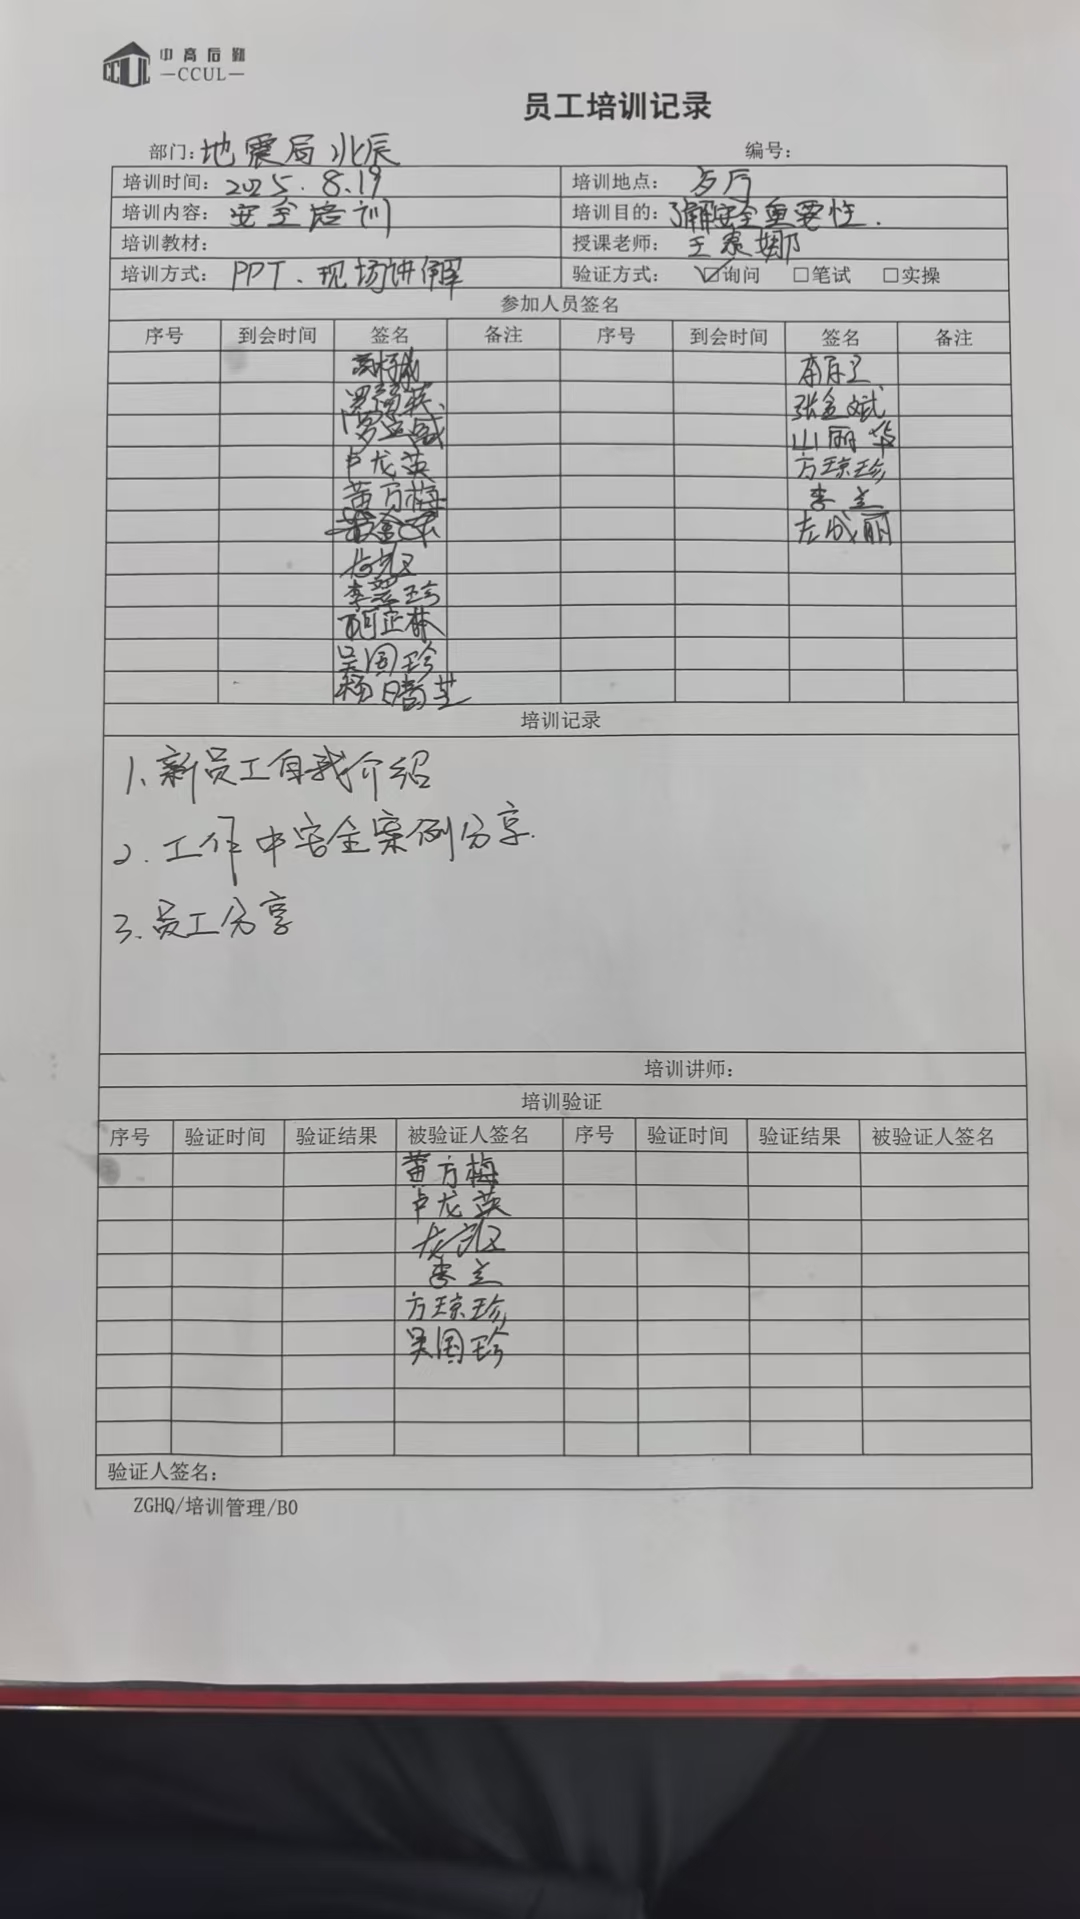 中高后勤
CCUL
员工培训记录
部门：地震局北辰 编号：
培训时间：2025.8.19 培训地点：
培训内容：安全培训 培训目的：了解安全重要性.
培训教材： 授课老师：
培训方式：PPT、现场讲解 验证方式：☑询问 □笔试 □实操
参加人员签名
序号 到会时间 签名 备注 序号 到会时间 签名 备注
张金斌
山丽华
卢龙英 方琼珍
黄方梅 李兰
左成丽
李翠珍
吴国珍
杨晴芝
培训记录
1、新员工自我介绍
2.工作中安全案例分享.
3.员工分享
培训讲师：
培训验证
序号 验证时间 验证结果 被验证人签名 序号 验证时间 验证结果 被验证人签名
黄方梅
卢龙英
李兰
方琼珍
吴国珍
验证人签名：
ZGHQ/培训管理/B0